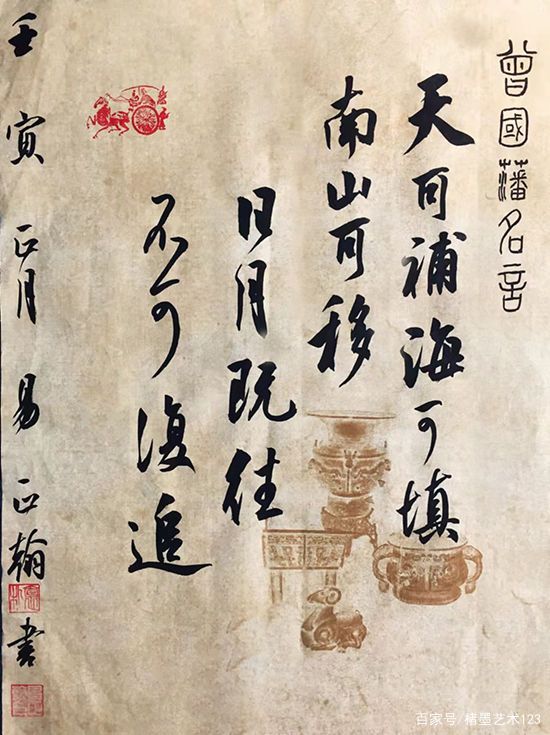 曾國藩名言
天可補海可填
南山可移
日月既往
不可復追
壬寅正月易正翰書
百家号/楮墨艺术123